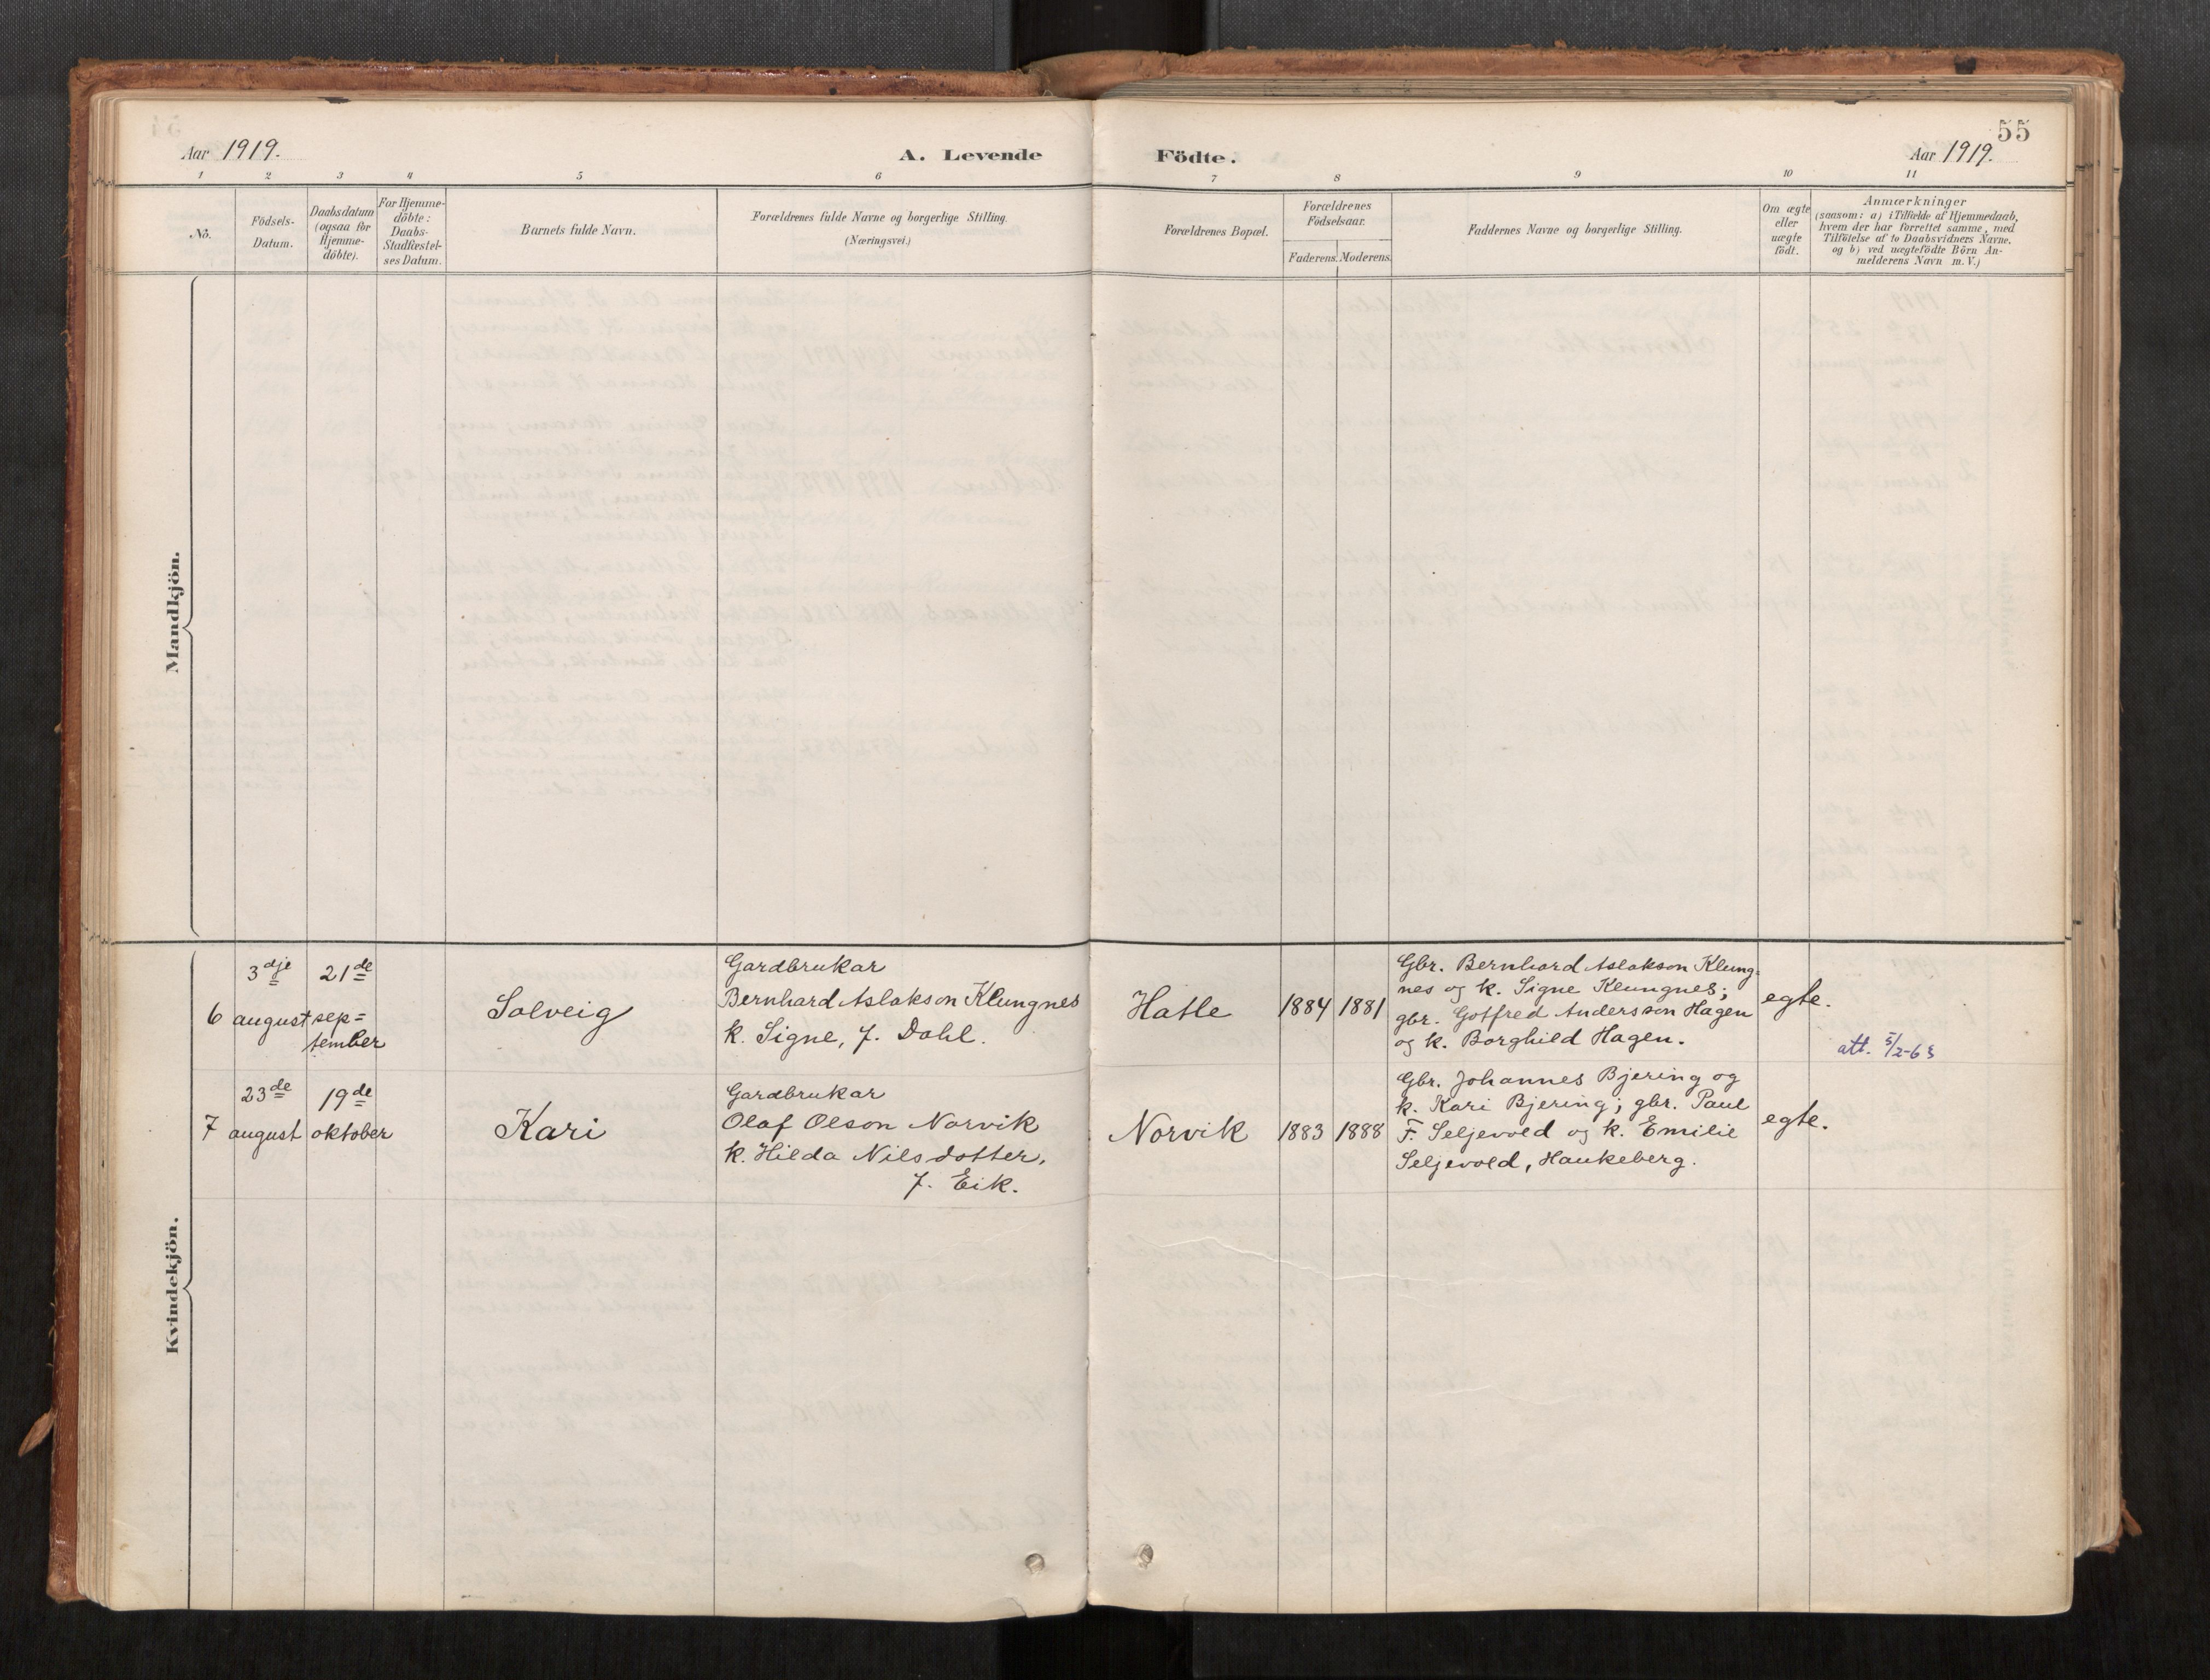 Aar 1919.
A. Levende Födte.
55
Aar 1919.
1 2 3 4 5 6 7 8 9 10 11
No.
Födsels-
Datum.
Daabsdatum
(ogsaa for
Hjemme-
döbte).
For Hjemme-
döbte:
Daabs-
Stadfæstel-
ses Datum.
Barnets fulde Navn.
Forældrenes fulde Navne og borgerlige Stilling.
(Næringsvei.)
Forældrenes Bopæl.
Forældrenes
Födselsaar.
Faderens. Moderens.
Faddernes Navne og borgerlige Stilling.
Om ægte
eller
uægte
födt.
Anmærkninger
(saasom: a) i Tilfælde af Hjemmedaab,
hvem der har forrettet samme, med
Tilföielse af to Daabsvidners Navne.
og b) ved uægtefödte Börn An-
melderens Navn m. V.)
Mandkjön.
Kvindekjön.
6
3dje
august
21de
sep=
tember
Solveig
Gardbrukar
Bernhard Aslakson Klungnes
k. Signe, f. Dahl.
Hatle
1884 1881
Gbr. Bernhard Aslakson Klung=
nes og k. Signe Klungnes;
gbr. Gotfred Andersson Hagen
og k. Borghild Hagen.
egte.
att. 5/2-65
7
23de
august
19de
oktober
Kari
Gardbrukar
Olaf Olson Norvik
k. Hilda Nilsdotter,
f. Eik.
Norvik
1883 1888
Gbr. Johannes Bjering og
k. Kari Bjering; gbr. Paul
F. Seljevold og k. Emilie
Seljevold, Haukeberg.
egte.